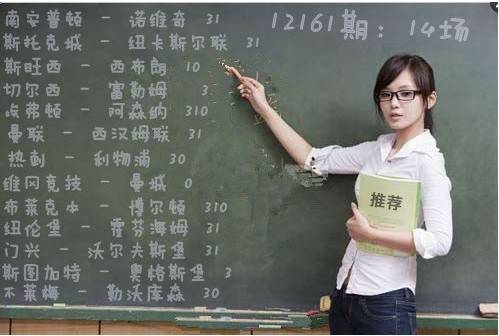 12161期：14场
南安普顿 - 诺维奇 31
斯托克城 - 纽卡斯尔联 31
斯旺西 - 西布朗 10
切尔西 - 富勒姆 3
埃弗顿 - 阿森纳 310
曼联 - 西汉姆联 31
热刺 - 利物浦 30
维冈竞技 - 曼城 0
布莱克本 - 博尔顿 310
纽伦堡 - 霍芬海姆 31
门兴 - 沃尔夫斯堡 31
斯图加特 - 奥格斯堡 3
不莱梅 - 勒沃库森 30
推荐